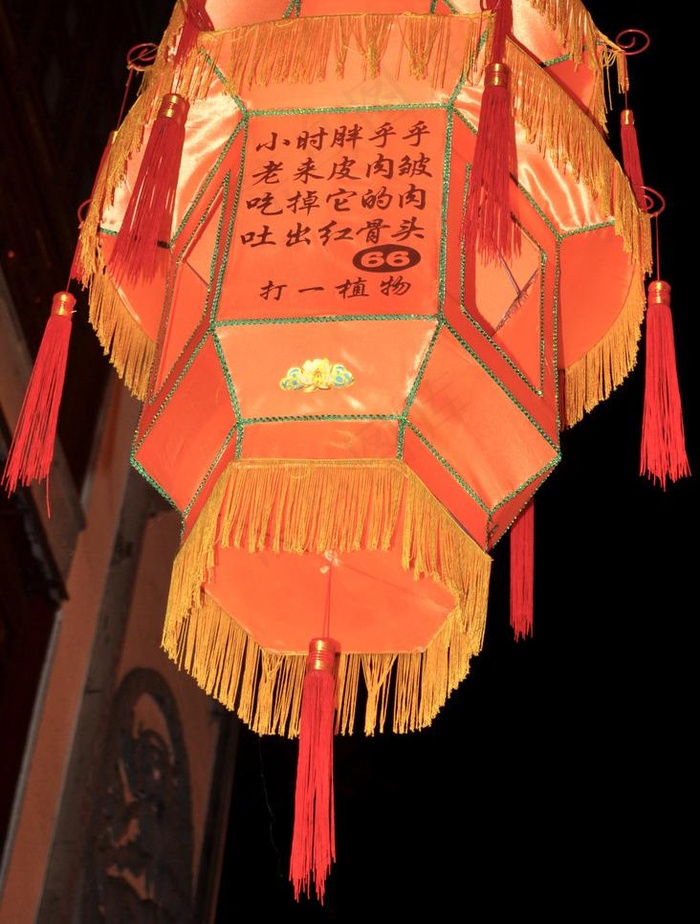 小时胖乎乎
老来皮肉皱
吃掉它的肉
吐出红骨头
66
打一植物